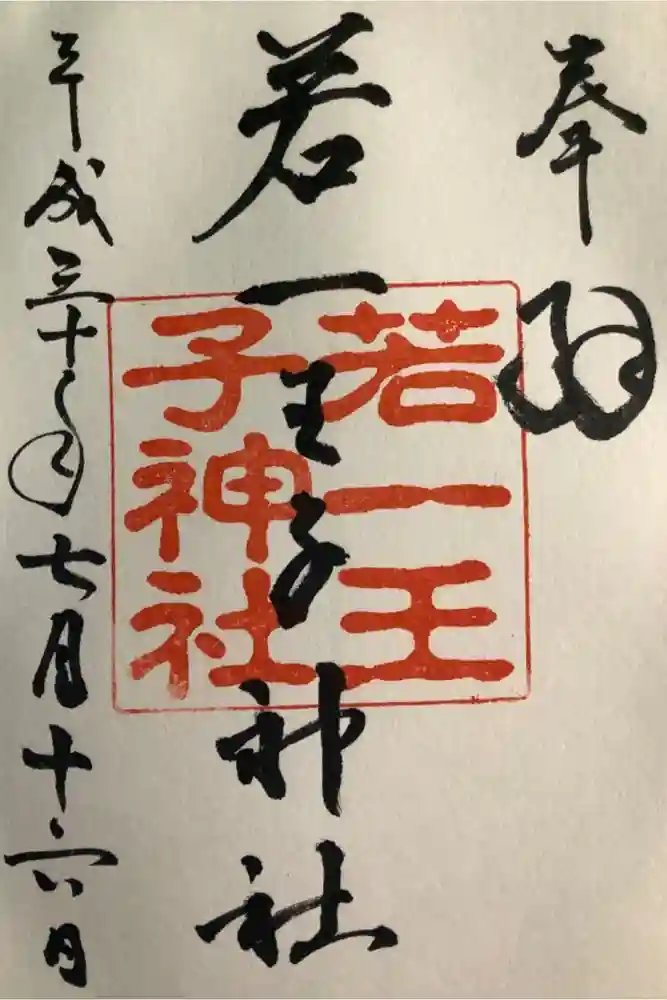 奉拝
若一王子神社
平成三十年七月十六日
若一王
子神社